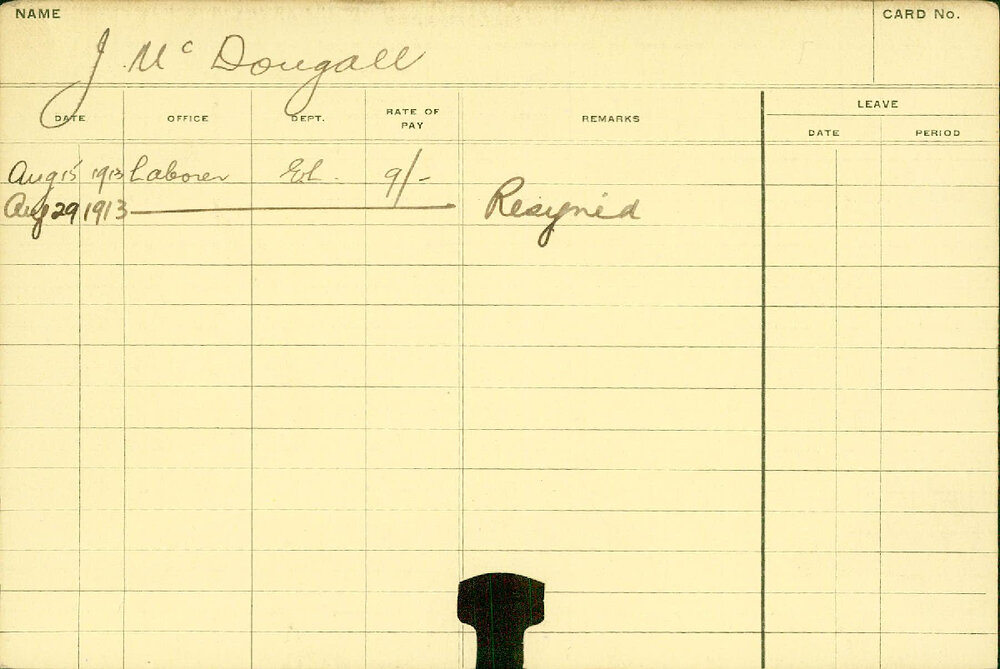 NAME
CARD No.
J. McDougall
DATE OFFICE DEPT. RATE OF PAY REMARKS LEAVE
DATE PERIOD
Aug 15 1913 Laborer El. 9/-
Aug 29 1913 Resigned